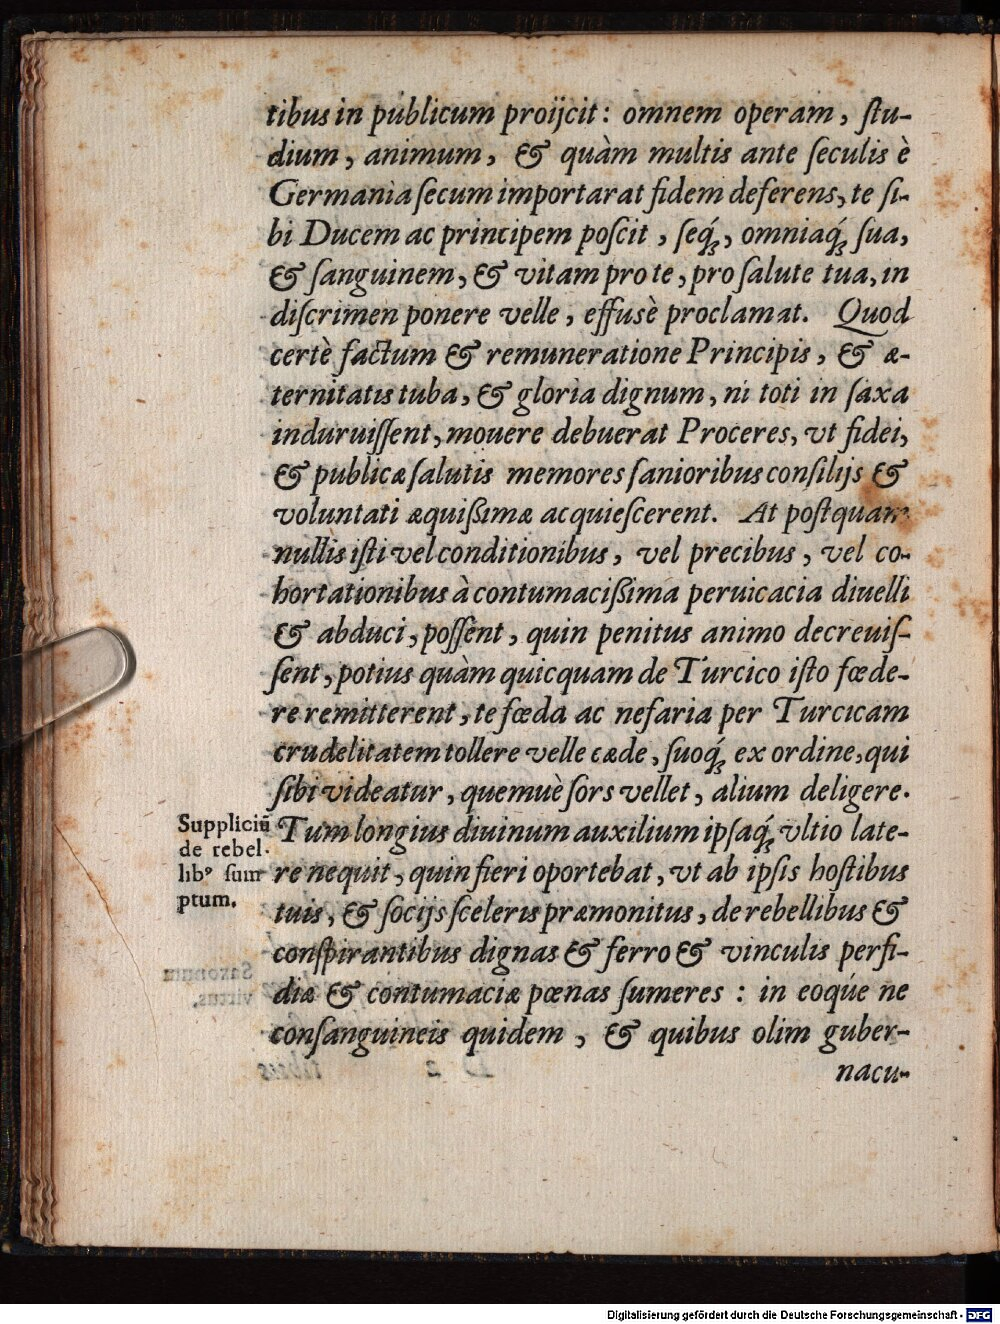 tibus in publicum proijcit: omnem operam, ſtu-
dium, animum, & quàm multis ante ſeculis è
Germania ſecum importarat fidem deferens, te ſi-
bi Ducem ac principem poſcit, ſeq́;, omniaq́; ſua,
& ſanguinem, & vitam pro te, pro ſalute tua, in
diſcrimen ponere velle, effusè proclamat. Quod
certè factum & remuneratione Principis, & æ-
ternitatis tuba, & gloria dignum, ni toti in ſaxa
induruiſſent, mouere debuerat Proceres, vt fidei,
& publicæ ſalutis memores ſanioribus conſilijs &
voluntati æquißimæ acquieſcerent. At poſtquam
nullis iſti vel conditionibus, vel precibus, vel co-
hortationibus à contumacißima peruicacia diuelli
& abduci, poſſent, quin penitus animo decreuiſ-
ſent, potius quàm quicquam de Turcico iſto fœde-
re remitterent, te fœda ac nefaria per Turcicam
crudelitatem tollere velle cæde, ſuoq́; ex ordine, qui
ſibi videatur, quemuè ſors vellet, alium deligere.
Tum longius diuinum auxilium ipſaq́; vltio late-
re nequit, quin fieri oportebat, vt ab ipſis hoſtibus
tuis, & ſocijs ſceleris præmonitus, de rebellibus &
conſpirantibus dignas & ferro & vinculis perfi-
diæ & contumaciæ pœnas ſumeres: in eoqúe ne
conſanguineis quidem, & quibus olim guber-
nacu-
Suppliciū
de rebel-
lib⁹ ſum
ptum.
Digitalisierung gefördert durch die Deutsche Forschungsgemeinschaft - DFG